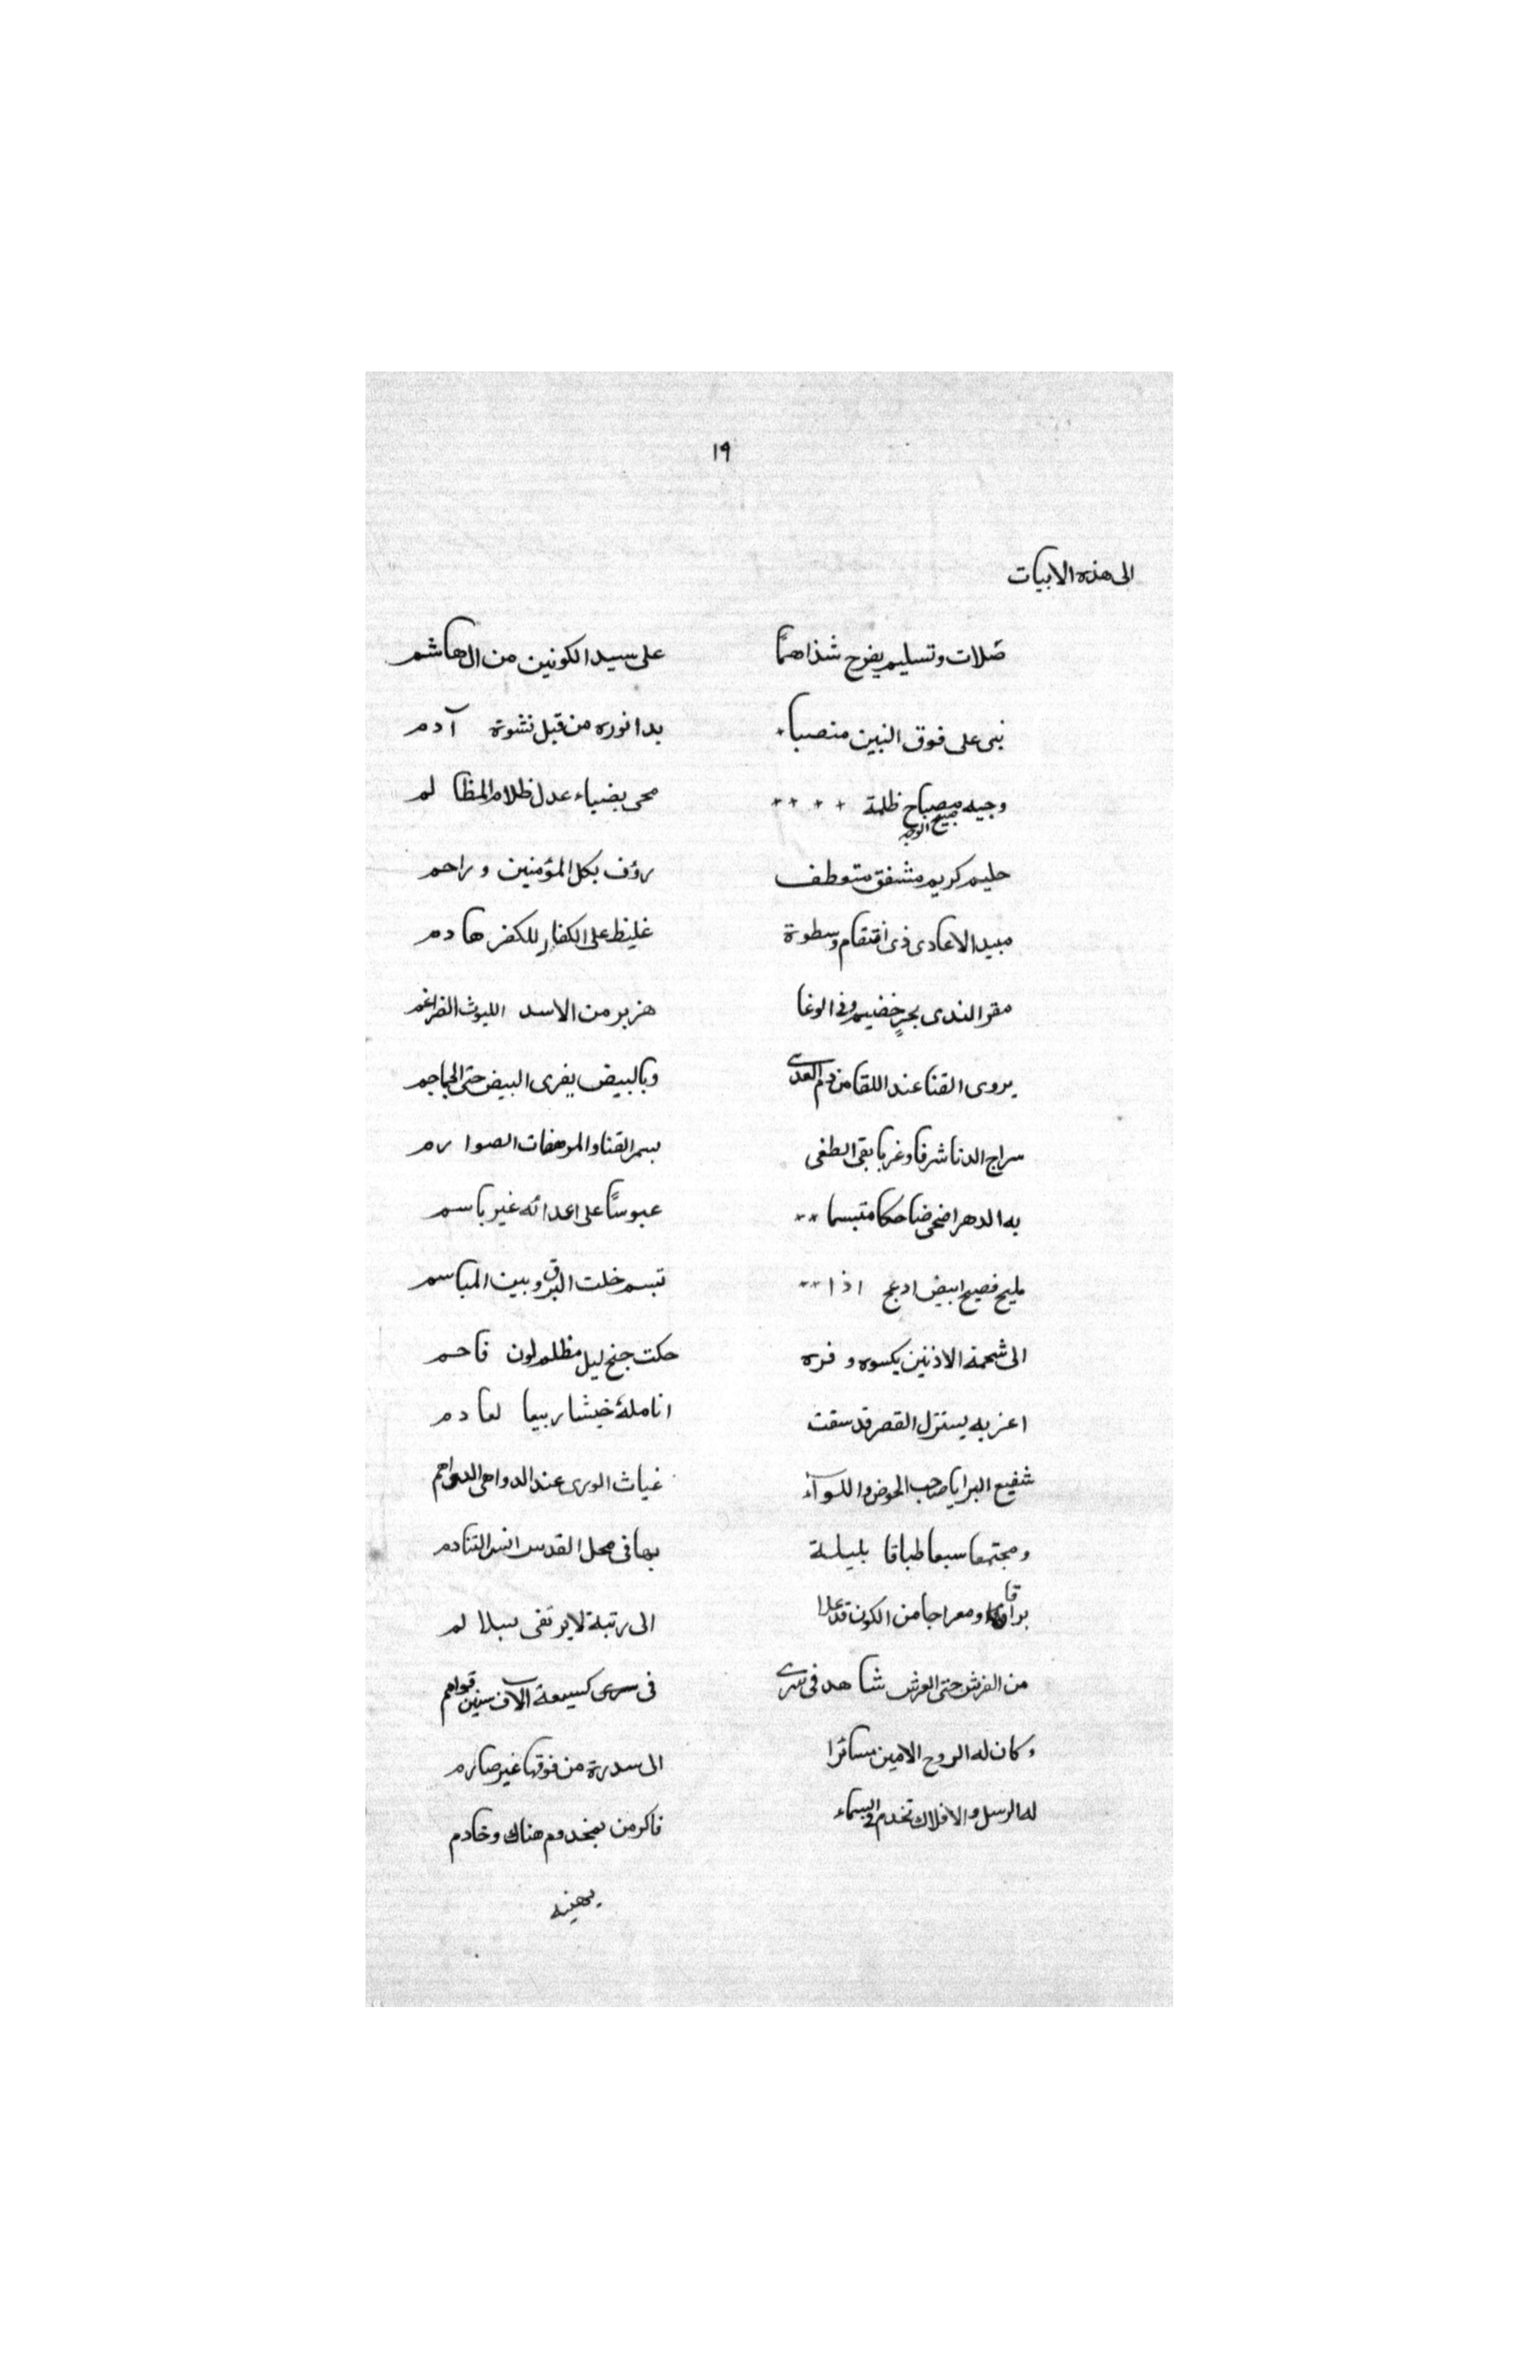 ١٩
الى هذه الابيات
صلات وتسليم يفوح شذاهما على سيد الكونين من ال هاشم
نبى على فوق النبين منصباء بدا نوره من قبل نشوة آدم
وجيه مصباح ظلمة + + + + محى بضياء عدل ظلام المظا لم
صبيح الوجه
حليم كريم مشفق متعطف رؤف بكل المؤمنين و راحم
مبيد الاعادى ذى انتقام وسطوة غليظ على الكفار للكفر هادم
مقر الندى بحر خضيم وفى الوغا هزبر من الاسد الليوث الضراغم
يروى القنا عند اللقا من دم العدى وبالبيض يفرى البيض حتى الجماجم
سراج الدنا شرقا وغربا بقى الطفى بسمر القنا والمرهفات الصوا رم
به الدهر اضحى ضاحكا متبسما ++ عبوسًا على اعدائه غير باسم
مليح فصيح ابيض ادعج اذا ++ تبسم خلت البرق وبين المباسم
الى شحمة الاذنين يكسوه و فره حكت جنح ليل مظلم لون فاحم
اعز به يستنزل القصر قد سقت انامله لعادم
شفيع البرايا صاحب الحوض واللوآء غياث الورى عند الدواهى الدواهم
ومجتمعا سبعا طباقا بليلة بها فى محل القدس انس التنادم
براقا ومعراجا من الكون قد علا الى رتبة لا يرتقى بسلا لم
من الفرش حتى العرش شاهد فى سرى فى سرى كسبعة آلاف سنين قوائم
وكان له الروح الامين مسائرا الى سدرة من فوقها غير صارم
له الرسل والافلاك تخدم فى السماء فاكر من بمخدوم هناك وخادم
يهنيه